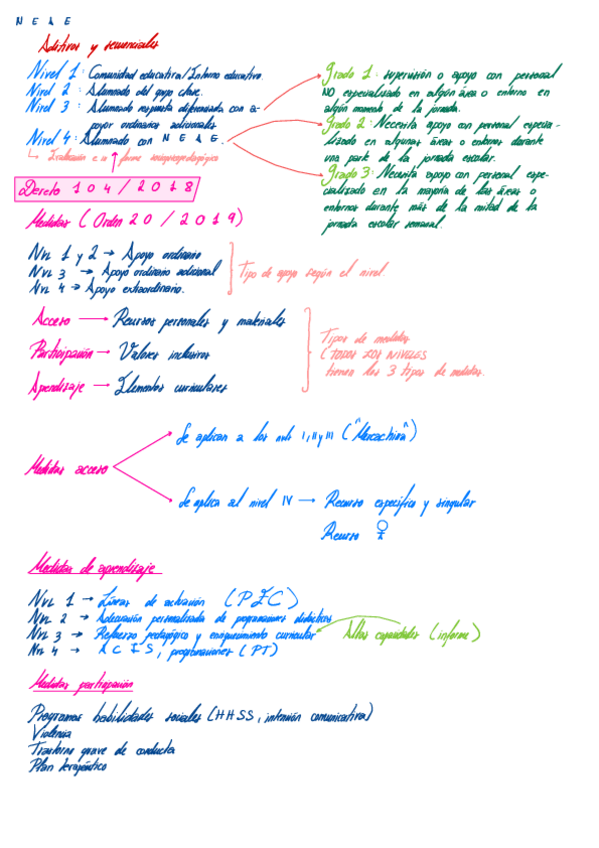 N E A E
Aditivos y semenciales
Nivel 1: Comunidad educativa/Entorno educativo.
Nivel 2: Alumnado del grupo clase.
Nivel 3: Alumnado respuesta diferenciada con a-
poyos ordinarios adicionales
Nivel 4: Alumnado con N E A E.
↳ Evaluación e informe sociopsicopedagógico
Grado 1: supervisión o apoyo con personal
NO especializado en algún área o entorno en
algún momento de la jornada.
Grado 2: Necesita apoyo con personal especia-
lizado en algunas áreas o entornos durante
una parte de la jornada escolar.
Grado 3: Necesita apoyo con personal espe-
cializado en la mayoría de las áreas o
entornos durante más de la mitad de la
jornada escolar semanal.
Decreto 104/2018
Medidas (Orden 20/2019)
Nvl 1 y 2 → Apoyo ordinario
Nvl 3 → Apoyo ordinario adicional
Nvl 4 → Apoyo extraordinario.
Tipo de apoyo según el nivel.
Acceso → Recursos personales y materiales
Participación → Valores inclusivos
Aprendizaje → Elementos curriculares
Tipos de medidas
(TODOS LOS NIVELES
tienen los 3 tipos de medidas.
Medidas acceso
Se aplican a los nvls I, II y III
Se aplica al nivel IV → Recurso específico y singular
Recurso ♀
Medidas de aprendizaje
Nvl 1 → Líneas de actuación (PEC)
Nvl 2 → Adecuación personalizada de programaciones didácticas
Nvl 3 → Refuerzo pedagógico y enriquecimiento curricular
Altas capacidades (informe)
Nvl 4 → A C I S, programaciones (PT)
Medidas participación
Programas habilidades sociales (HHSS, intención comunicativa)
Violencia
Trastorno grave de conducta
Plan terapéutico